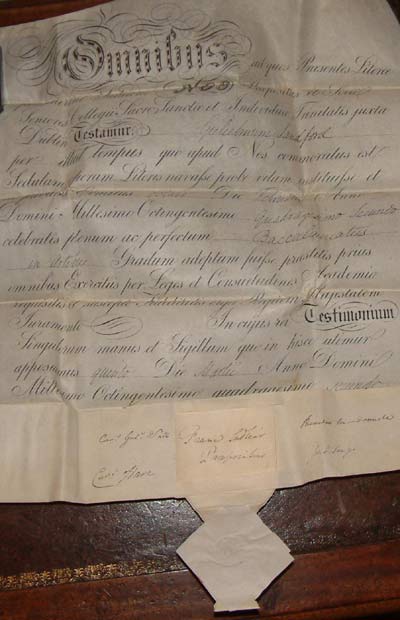 Omnibus ad quos Praesentes Literae
Nos Praepositus et Socii
Seniores Collegii Sacro Sanctae et Individuae Trinitatis juxta
Dublin Testamur, Gulielmum
per illud tempus quo apud Nos commoratus est
Sedulam operam Literis navasse probe vitam instituisse et
Die Anno
Domini Millesimo Octingentesimo Quadragesimo Secundo
celebratis plenum ac perfectum Baccalaureatus
in Artibus Gradum adeptum fuisse praestitis prius
omnibus Exercitiis per Leges et Consuetudines Academiae
requisitis et suscepto Fidelitatis erga Regiam Majestatem
Juramento In cujus rei Testimonium
Singulorum manus et Sigillum quo in hisce utimur
apposuimus quinto Die Martii Anno Domini
Millesimo Octingentesimo quadragesimo secundo
Franc Sadleir
Praepositus